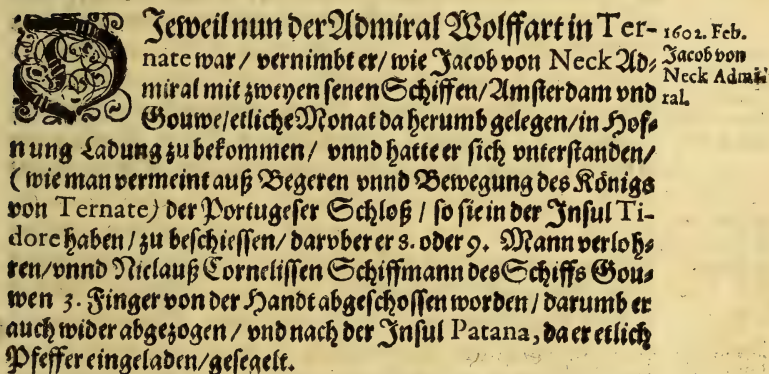 DJeweil nun der Admiral Wolffart in Ter-
nate war / vernimbt er / wie Jacob von Neck Ad-
miral mit zweyen senen Schiffen / Amsterdam vnd
Gouwe / etliche Monat da herumb gelegen / in Hof-
nung Ladung zu bekommen / vnnd hatte er sich vnterstanden /
(wie man vermeint auß Begeren vnnd Bewegung des Königs
von Ternate) der Portugeser Schloß / so sie in der Insul Ti-
dore haben / zu beschiessen / darvber er 8. oder 9. Mann verloh-
ren / vnnd Niclauß Cornelissen Schiffmann des Schiffs Gou-
wen 3. Finger von der Handt abgeschossen worden / darumb er
auch wider abgezogen / vnd nach der Insul Patana, da er etlich
Pfeffer eingeladen / gesegelt.
1602. Feb.
Jacob von
Neck Admi-
ral.